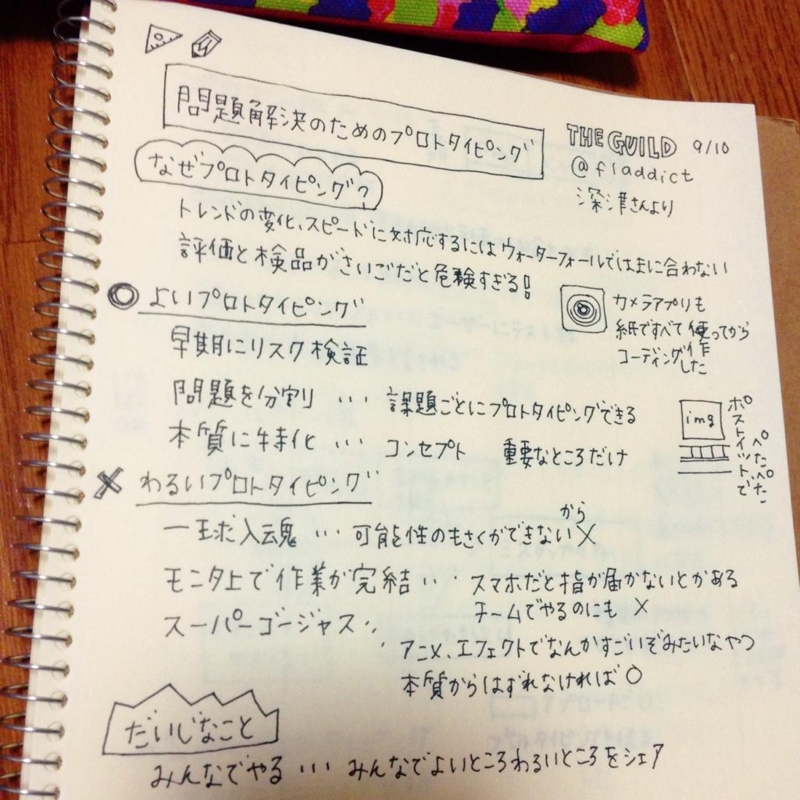 問題解決のためのプロトタイピング
THE GUILD 9/10
@fladdict
深津さんより
なぜプロトタイピング?
トレンドの変化、スピードに対応するにはウォーターフォールでは間に合わない
評価と検品がさいごだと危険すぎる!
よいプロトタイピング
カメラアプリも
紙ですべて作って使ってから
コーディングした
早期にリスク検証
問題を分割 … 課題ごとにプロトタイピングできる
本質に特化 … コンセプト 重要なところだけ
img
ポストイットで
ぺたぺた
× わるいプロトタイピング
一球入魂 … 可能性のもさくができないから×
モニタ上で作業が完結 … スマホだと指が届かないとかある
チームでやるのにも ×
スーパーゴージャス…
アニメ、エフェクトでなんかすごいぞみたいなやつ
本質からはずれなければ○
だいじなこと
みんなでやる … みんなでよいところわるいところをシェア